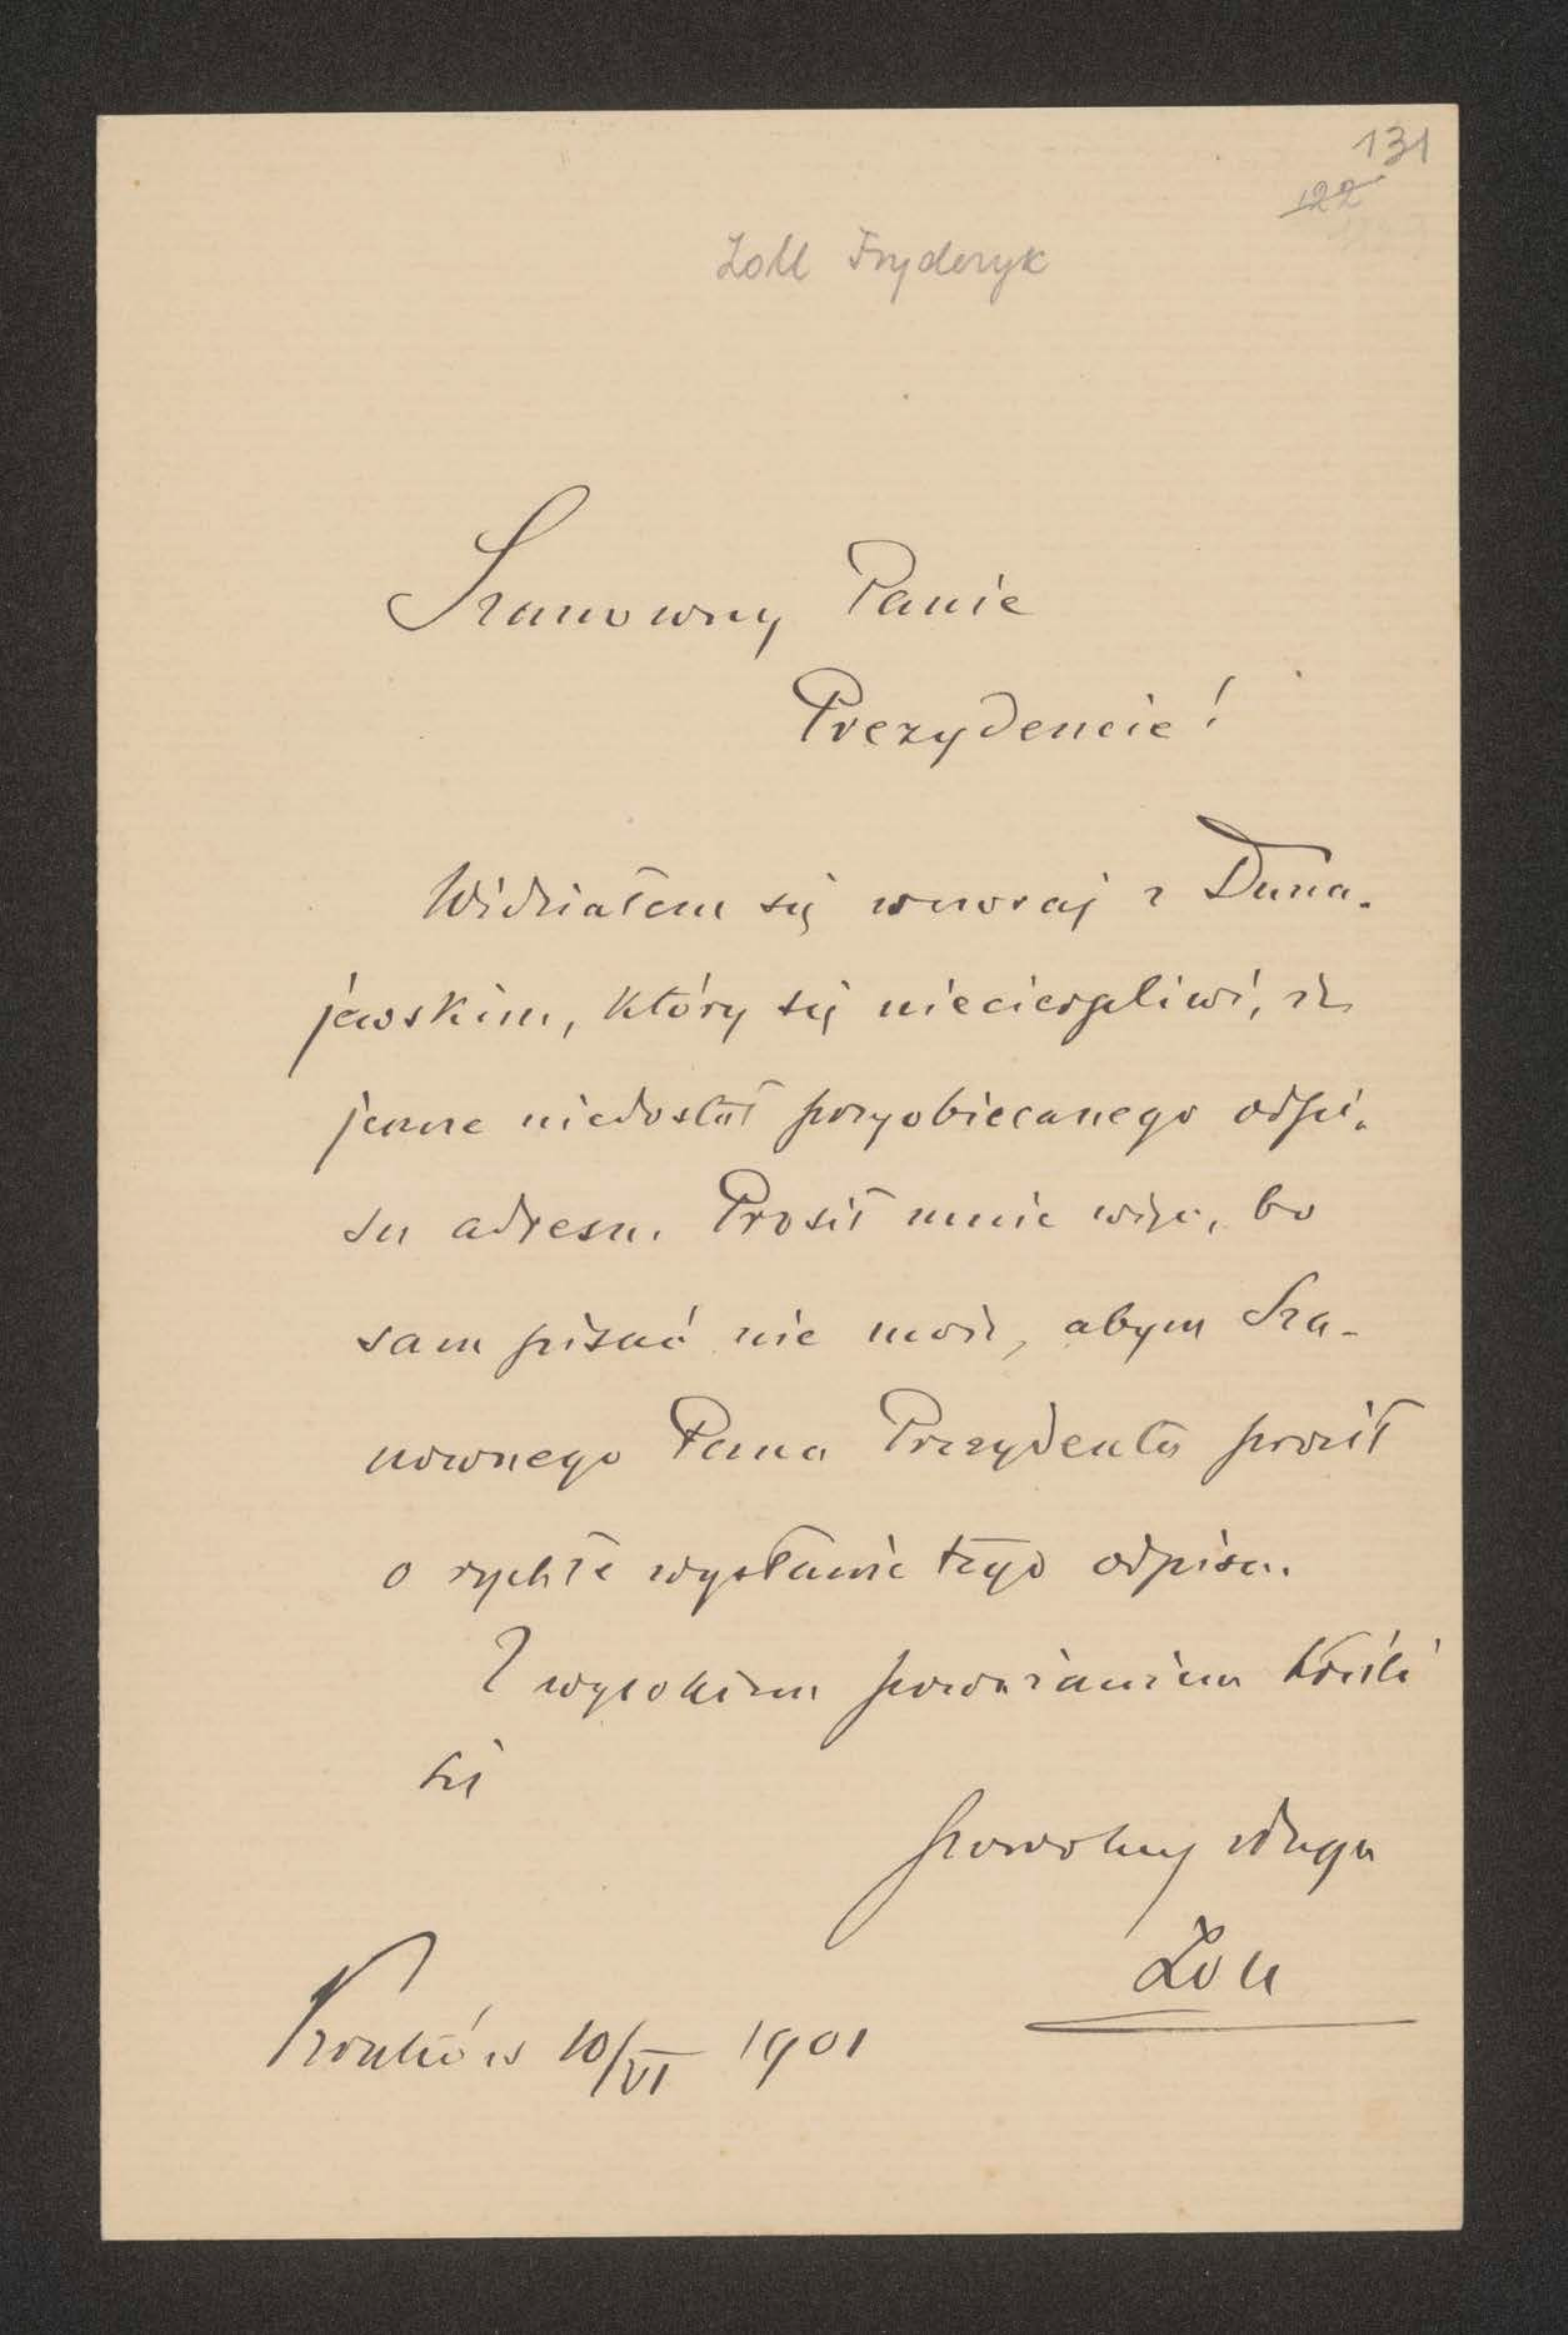 131
122
Zoll Fryderyk
Szanowny Panie
Prezydencie!
Widziałem się wczoraj z Duna-
jewskim, który się niecierpliwi, że
jeszcze niedostał przyobiecanego odpi-
su adresu. Prosił mnie więc, bo
sam pisać nie może, abym Sza-
nownego Pana Prezydenta prosił
o rychłe wysłanie tego odpisu.
Z wysokiem poważaniem kreśli
się
powolny sługa
Zoll
Kraków 10/VI 1901